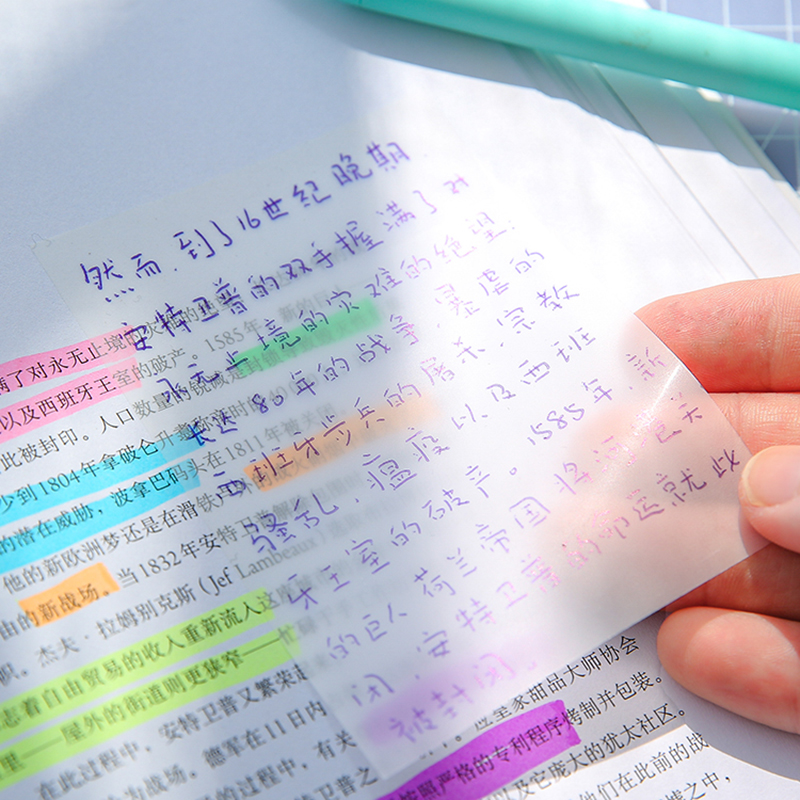 然而.到了16世纪晚期
安特卫普的双手握满了对
永无止境的灾难的绝望.
长达80年的战争.暴虐的
西班牙步兵的屠杀.宗教
骚乱.瘟疫以及西班
牙王室的破产。1585年.新
的巨人荷兰帝国将河口关
闭.安特卫普的命运就此
被封闭。
满了对永无止境的灾
以及西班牙王室的破产。1585年，新的
此被封印。人口数量的锐减是
少到1804年拿破仑升
的潜在威胁，波拿巴码头在1811年被
他的新欧洲梦还是在滑铁
由的新战场。当1832年安特卫
职。杰夫·拉姆别克斯（Jef Lambeaux）
志着自由贸易的收入重新流入这
里——屋外的街道则更狭窄——
在此过程中，安特卫普又繁荣
为战场。德军在11日内
的过程中，有关
卫普之
应至家甜品大师协会
按照严格的专利程序烤制并包装。
以及它庞大的犹太社区。
他们在此前的战
之中，